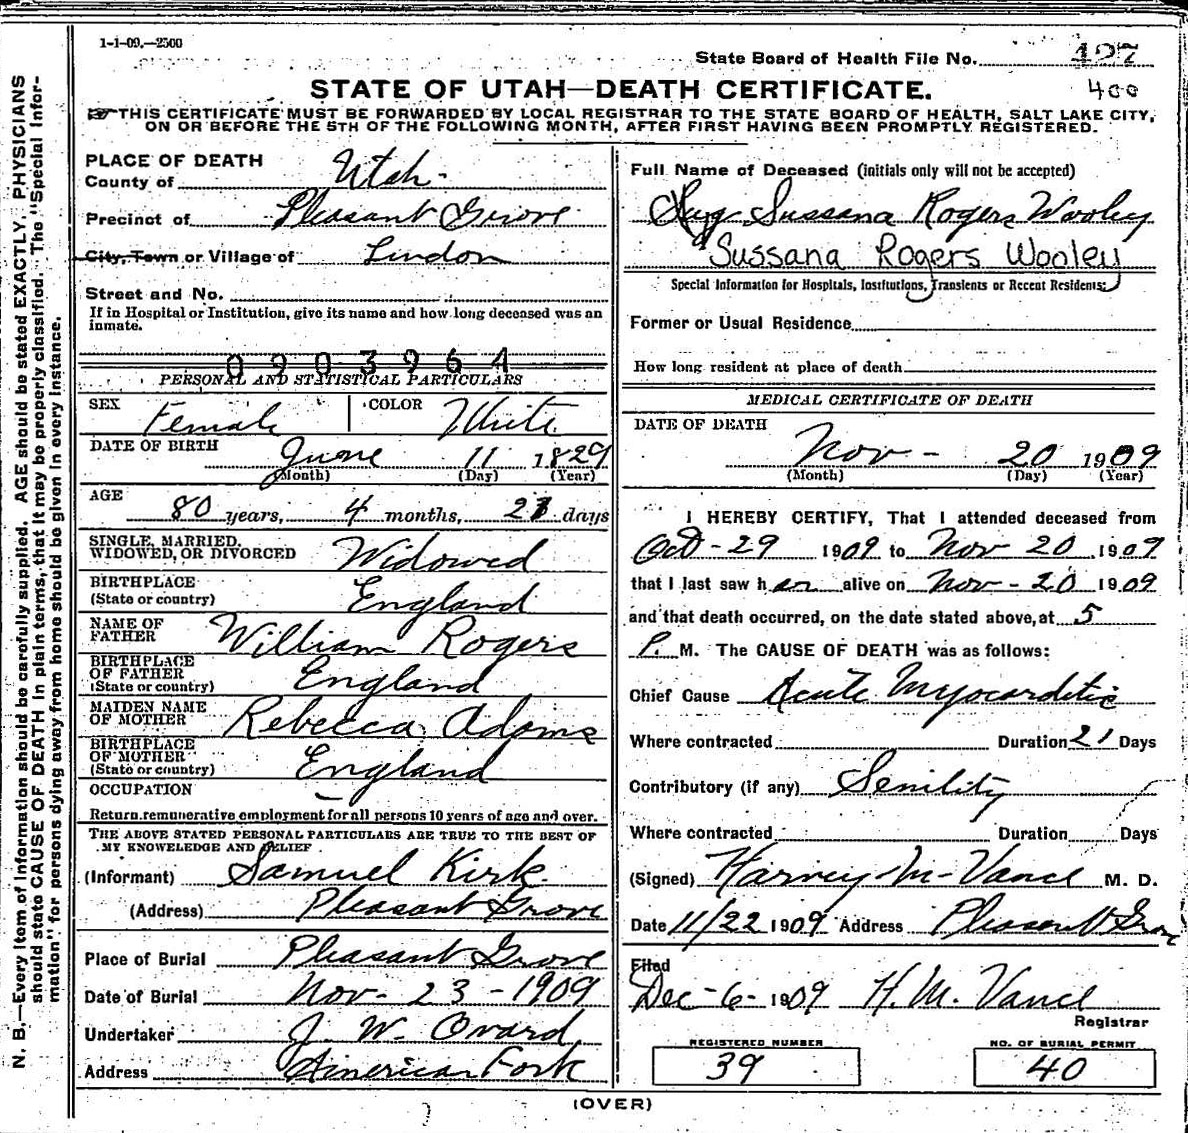 1-1-09.—2500
State Board of Health File No. 427
400
STATE OF UTAH—DEATH CERTIFICATE.
THIS CERTIFICATE MUST BE FORWARDED BY LOCAL REGISTRAR TO THE STATE BOARD OF HEALTH, SALT LAKE CITY,
ON OR BEFORE THE 5TH OF THE FOLLOWING MONTH, AFTER FIRST HAVING BEEN PROMPTLY REGISTERED.
N. B.—Every item of information should be carefully supplied. AGE should be stated EXACTLY. PHYSICIANS
should state CAUSE OF DEATH in plain terms, that it may be properly classified. The "Special Infor-
mation" for persons dying away from home should be given in every instance.
PLACE OF DEATH
County of Utah
Precinct of Pleasant Grove
City, Town or Village of Lindon
Street and No.
If in Hospital or Institution, give its name and how long deceased was an
inmate.
0903964
PERSONAL AND STATISTICAL PARTICULARS
SEX Female COLOR White
DATE OF BIRTH June 11 1829
(Month) (Day) (Year)
AGE
80 years, 4 months, days
SINGLE, MARRIED,
WIDOWED, OR DIVORCED Widowed
BIRTHPLACE
(State or country) England
NAME OF
FATHER William Rogers
BIRTHPLACE
OF FATHER
(State or country) England
MAIDEN NAME
OF MOTHER Rebecca Adams
BIRTHPLACE
OF MOTHER
(State or country) England
OCCUPATION
Return remunerative employment for all persons 10 years of age and over.
THE ABOVE STATED PERSONAL PARTICULARS ARE TRUE TO THE BEST OF
MY KNOWELEDGE AND BELIEF
(Informant) Samuel Kirk
(Address) Pleasant Grove
Place of Burial Pleasant Grove
Date of Burial Nov- 23-1909
Undertaker J. W. Ovard
Address American Fork
Full Name of Deceased (initials only will not be accepted)
Sussana Rogers Wooley
Sussana Rogers Wooley
Special Information for Hospitals, Institutions, Transients or Recent Residents:
Former or Usual Residence
How long resident at place of death
MEDICAL CERTIFICATE OF DEATH
DATE OF DEATH
Nov- 20 1909
(Month) (Day) (Year)
I HEREBY CERTIFY, That I attended deceased from
Oct-29 1909 to Nov 20 1909
that I last saw her alive on Nov-20 1909
and that death occurred, on the date stated above, at 5
P. M. The CAUSE OF DEATH was as follows:
Chief Cause Acute Myocarditis
Where contracted Duration 21 Days
Contributory (if any) Senility
Where contracted Duration Days
(Signed) Harvey M-Vance M. D.
Date 11/22 1909 Address Pleasant Grove
Filed
Dec-6- 1909 H. M. Vance
Registrar
REGISTERED NUMBER
39
NO. OF BURIAL PERMIT
40
(OVER)